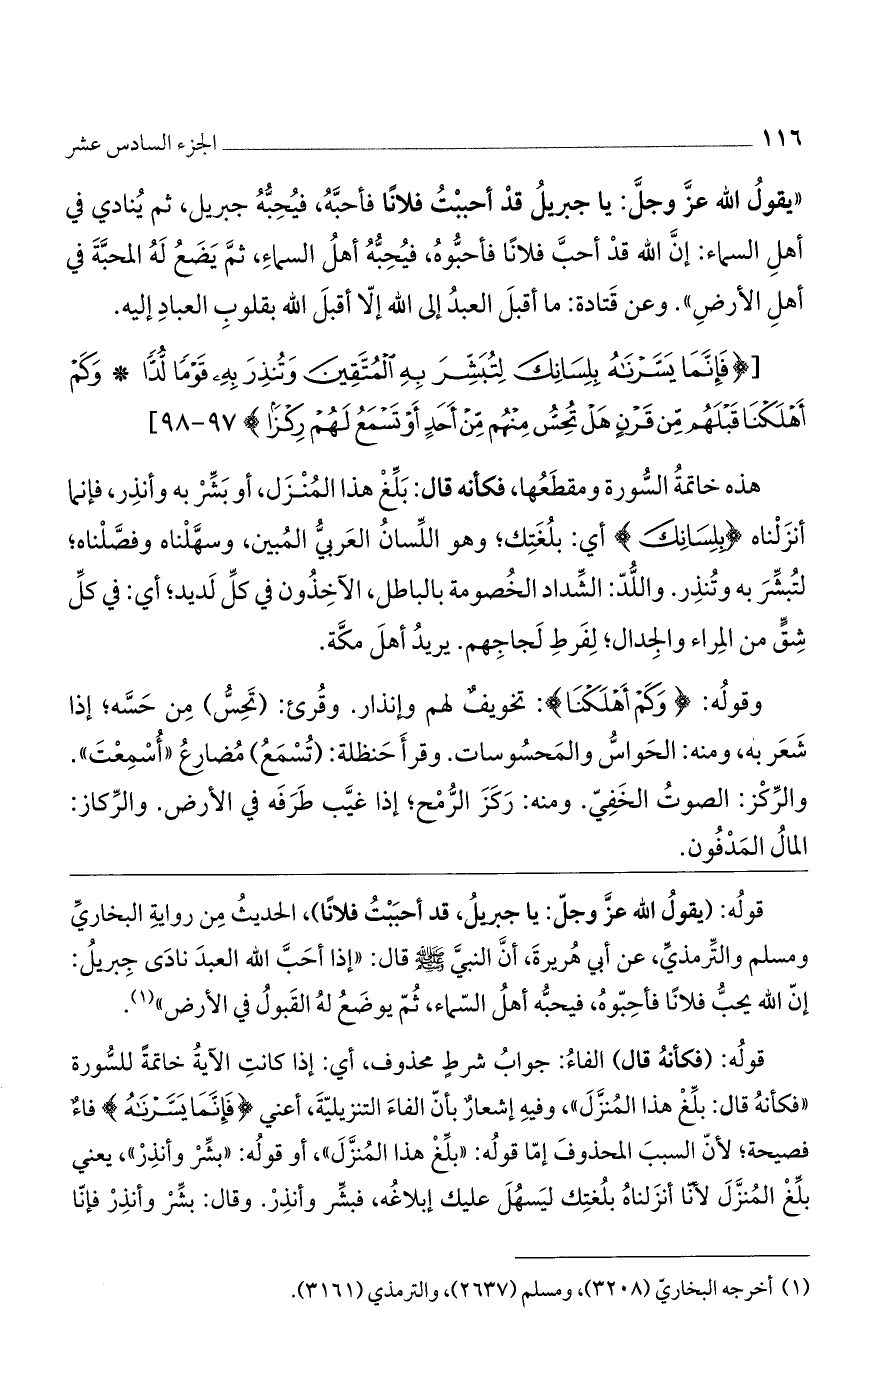 ١١٦ الجزء السادس عشر
«يقولُ الله عزَّ وجلَّ: يا جبريلُ قدْ أحببْتُ فلانًا فأحبَّهُ، فيُحِبُّهُ جبريل، ثم يُنادي في
أهلِ السماء: إنَّ الله قدْ أحبَّ فلانًا فأحبُّوهُ، فيُحِبُّهُ أهلُ السماءِ، ثمَّ يَضَعُ لَهُ المحبَّةَ في
أهلِ الأرضِ». وعن قَتادة: ما أقبلَ العبدُ إلى الله إلّا أقبلَ الله بقلوبِ العبادِ إليه.
[﴿فَإِنَّمَا يَسَّرْنَٰهُ بِلِسَانِكَ لِتُبَشِّرَ بِهِ ٱلْمُتَّقِينَ وَتُنذِرَ بِهِۦ قَوْمًا لُّدًّا * وَكَمْ
أَهْلَكْنَا قَبْلَهُم مِّن قَرْنٍ هَلْ تُحِسُّ مِنْهُم مِّنْ أَحَدٍ أَوْ تَسْمَعُ لَهُمْ رِكْزًا﴾ ٩٧-٩٨]
هذه خاتمةُ السُّورة ومقطَعُها، فكأنه قال: بَلِّغْ هذا المُنْزَل، أو بَشِّرْ به وأنذِر، فإنما
أنزَلْناه ﴿بِلِسَانِكَ﴾ أي: بلُغَتِك؛ وهو اللِّسانُ العَربيُّ المُبين، وسهَّلْناه وفصَّلْناه؛
لتُبشِّرَ به وتُنذِر. واللُّدّ: الشِّداد الخُصومة بالباطل، الآخِذُون في كلِّ لَديد؛ أي: في كلِّ
شِقٍّ من المِراء والجِدال؛ لِفَرطِ لَجاجِهم. يريدُ أهلَ مكَّة.
وقولُه: ﴿وَكَمْ أَهْلَكْنَا﴾: تخويفٌ لهم وإنذار. وقُرئ: (تَحِسُّ) مِن حَسَّه؛ إذا
شَعَر به، ومنه: الحَواسُّ والمَحسُوسات. وقرأ حَنظلة: (تُسْمَعُ) مُضارِعُ «أُسْمِعْتَ».
والرِّكْز: الصوتُ الخَفِيّ. ومنه: رَكَزَ الرُّمْح؛ إذا غيَّب طَرَفَه في الأرض. والرِّكاز:
المالُ المَدْفُون.
قولُه: (يقولُ الله عزَّ وجلّ: يا جبريلُ، قد أحبَبْتُ فلانًا)، الحديثُ مِن روايةِ البخاريِّ
ومسلم والتِّرمذيِّ، عن أبي هُريرةَ، أنَّ النبيَّ ﷺ قال: «إذا أحَبَّ الله العبدَ نادَى جِبريلُ:
إنّ الله يحبُّ فلانًا فأحِبّوهُ، فيحبُّه أهلُ السّماء، ثُمّ يوضَعُ لهُ القَبولُ في الأرض»(١).
قولُه: (فكأنهُ قال) الفاءُ: جوابُ شرطٍ محذوف، أي: إذا كانتِ الآيةُ خاتمةً للسُّورة
«فكأنهُ قال: بلِّغْ هذا المُنزَّلَ»، وفيهِ إشعارٌ بأنّ الفاءَ التنزيليّةَ، أعني ﴿فَإِنَّمَا يَسَّرْنَٰهُ﴾ فاءٌ
فصيحة؛ لأنّ السببَ المحذوفَ إمّا قولُه: «بلِّغْ هذا المُنزَّلَ»، أو قولُه: «بشِّرْ وأنذِرْ»، يعني
بلِّغْ المُنزَّلَ لأنّا أنزَلناهُ بلُغتِك ليَسهُلَ عليك إبلاغُه، فبشِّر وأنذِرْ. وقال: بشِّرْ وأنذِرْ فإنّا
(١) أخرجه البخاريّ (٣٢٠٨)، ومسلم (٢٦٣٧)، والترمذي (٣١٦١).